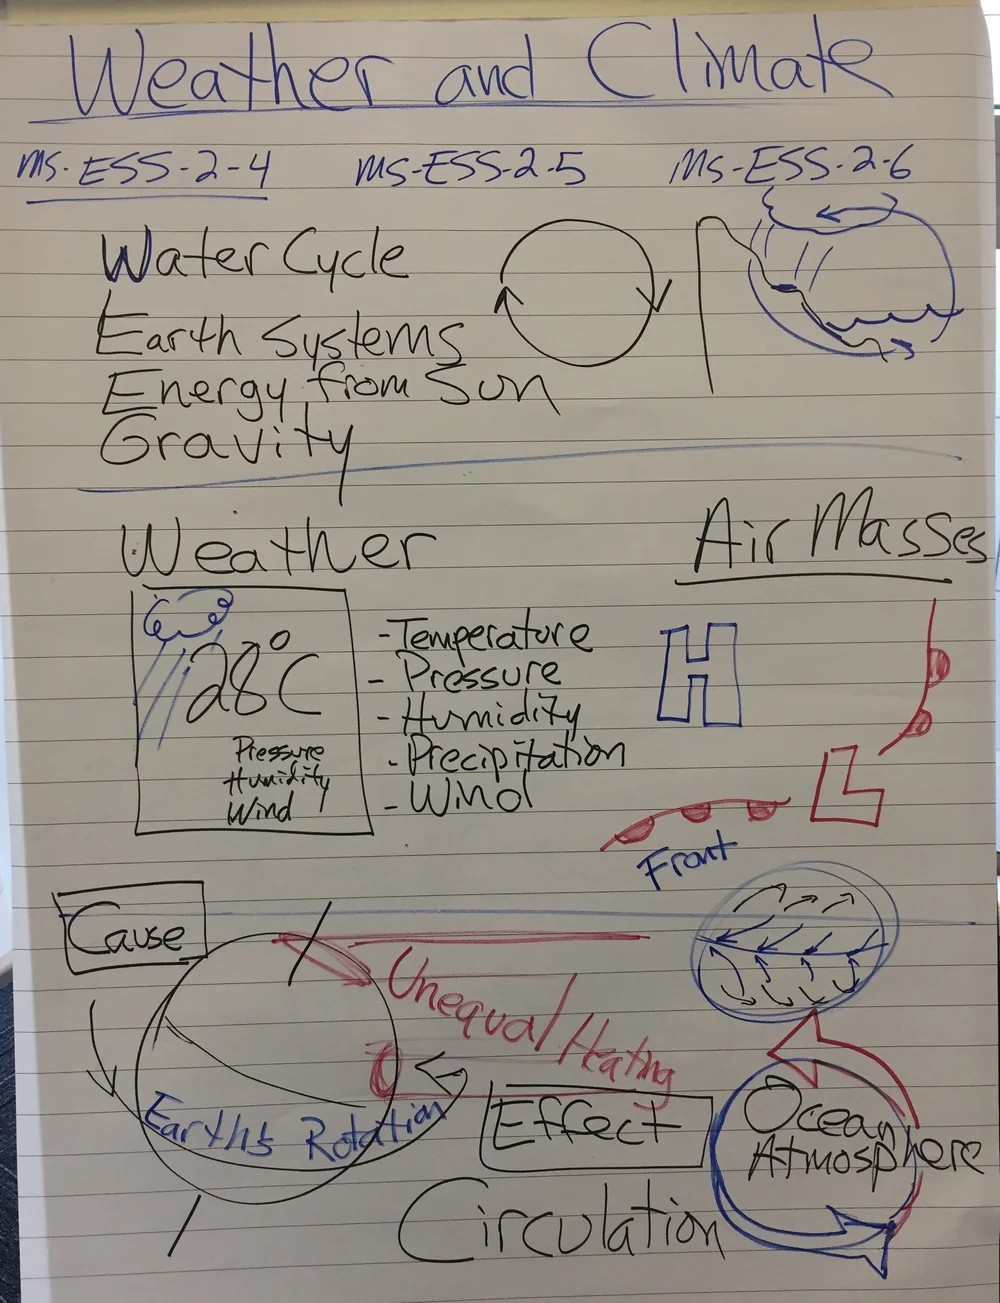 Weather and Climate
MS-ESS-2-4 MS-ESS-2-5 MS-ESS-2-6
Water Cycle
Earth Systems
Energy from Sun
Gravity
Weather
Air Masses
28°C
Pressure
Humidity
Wind
-Temperature
- Pressure
- Humidity
- Precipitation
- Wind
H
L
Front
Cause
Unequal Heating
Earth's Rotation
Effect
Circulation
Ocean
Atmosphere